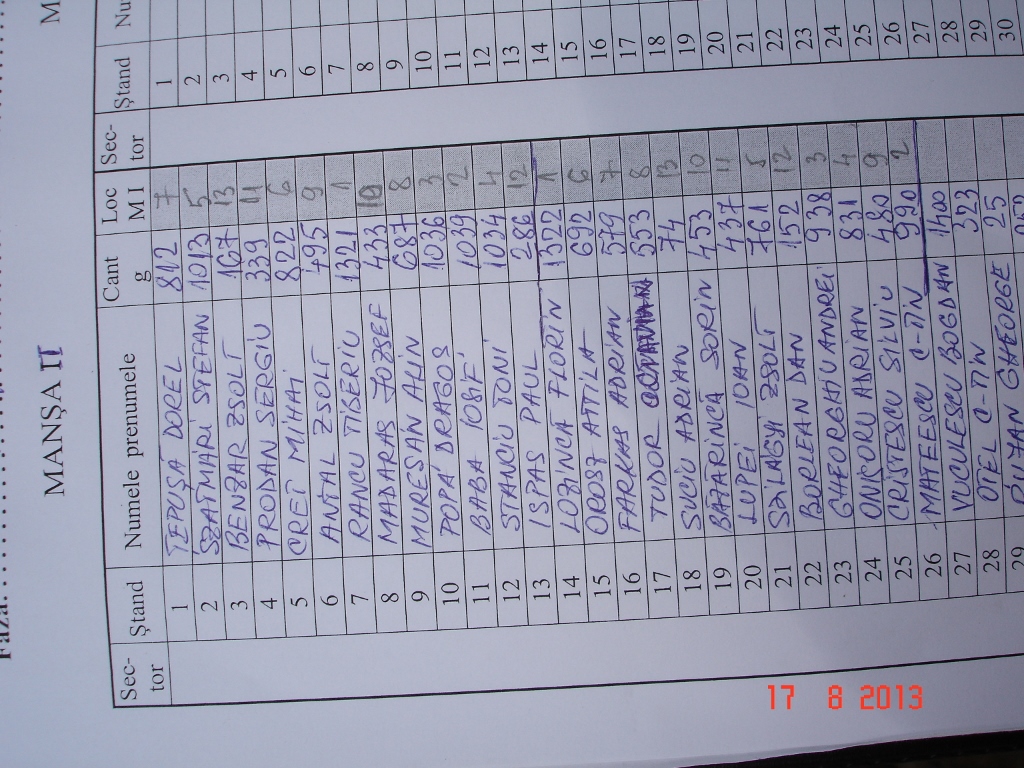 Faza
MANȘA II
M
Sec-tor Ștand Numele prenumele Cant g Loc M I Sec-tor Ștand Nu
1 ȚEPUȘĂ DOREL 812 7 1
2 SZATMARI STEFAN 1013 5 2
3 BENZAR ZSOLT 167 13 3
4 PRODAN SERGIU 339 11 4
5 CREȚ MIHAI 822 6 5
6 ANTAL ZSOLT 495 9 6
7 RANCU TIBERIU 1321 1 7
8 MADARAS JOZSEF 433 10 8
9 MUREȘAN ALIN 687 8 9
10 POPA DRAGOȘ 1036 3 10
11 BABA IOSIF 1039 2 11
12 STANCIU TONI 1024 4 12
13 ISPAS PAUL 286 12 13
14 LOZINCĂ FLORIN 1322 1 14
15 OROSZ ATILA 692 6 15
16 FARKAS ADRIAN 579 7 16
17 TUDOR 553 8 17
18 SUCIU ADRIAN 74 13 18
19 BĂTĂRINCĂ SORIN 453 10 19
20 LUPEI IOAN 437 11 20
21 SZILAGYI ZSOLT 761 5 21
22 BORLEAN DAN 152 12 22
23 GHEORGHIU ANDREI 938 3 23
24 ONISORU ADRIAN 831 4 24
25 CRISTESCU SILVIU 480 9 25
26 MATEESCU C-TIN 990 2 26
27 VUCULESCU BOGDAN 1400 27
28 OTEL C-TIN 323 28
29 GHEORGE 25 29
30
17 8 2013